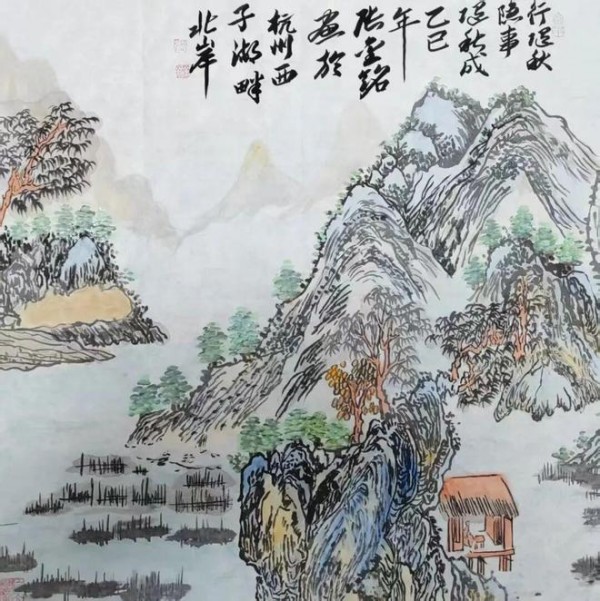 行秋
隐事
秋成
乙巳
年
张铭
画於
杭州西
子湖畔
北岸